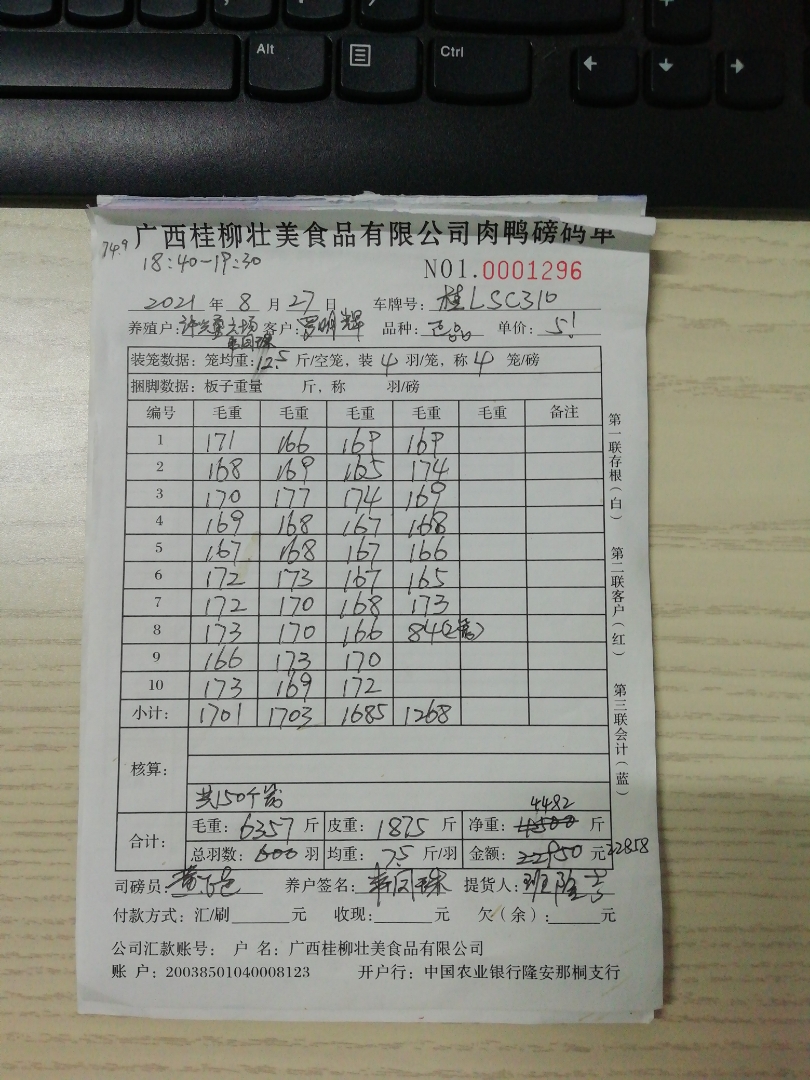 Alt
Ctrl
广西桂柳壮美食品有限公司肉鸭磅码单
74.9
18:40-19:30
NO1.0001296
2021 年 8 月 27 日 车牌号: 桂LSC310
养殖户: 客户: 罗明辉 品种: 单价: 5.1
装笼数据: 笼均重: 12.5 斤/空笼, 装 4 羽/笼, 称 4 笼/磅
捆脚数据: 板子重量 斤, 称 羽/磅
编号 毛重 毛重 毛重 毛重 毛重 备注
1 171 166 169 169
2 168 169 165 174
3 170 177 174 169
4 169 168 167 168
5 167 168 167 166
6 172 173 167 165
7 172 170 168 173
8 173 170 166 84(2笼)
9 166 173 170
10 173 169 172
小计: 1701 1703 1685 1268
核算:
共150个笼
4482
合计: 毛重: 6357 斤 皮重: 1875 斤 净重: 斤
总羽数: 600 羽 均重: 7.5 斤/羽 金额: 22950 元 22858
司磅员: 养户签名: 提货人:
付款方式: 汇/刷 元 收现: 元 欠(余): 元
公司汇款账号: 户 名: 广西桂柳壮美食品有限公司
账 户: 20038501040008123 开户行: 中国农业银行隆安那桐支行
第一联存根(白)
第二联客户(红)
第三联会计(蓝)